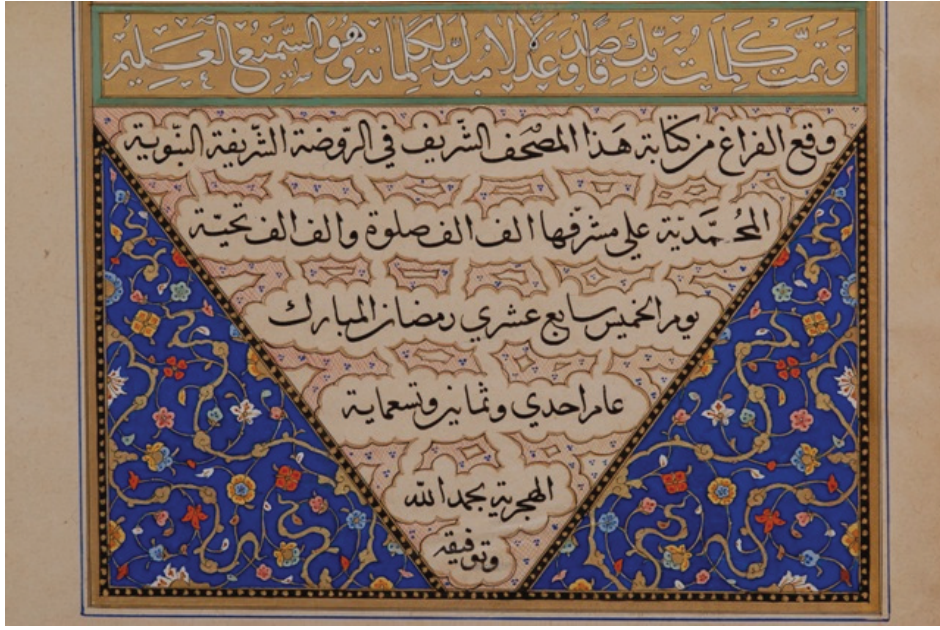 وَتَمَّتْ كَلِمَاتُ رَبِّكَ صِدْقًا وَعَدْلًا لَا مُبَدِّلَ لِكَلِمَاتِهِ وَهُوَ السَّمِيعُ الْعَلِيمُ
وقع الفراغ من كتابة هذا المصحف الشريف في الروضة الشريفة النبوية
المحمدية على مشرفها الف الف صلوة والف الف تحية
يوم الخميس سابع عشري رمضان المبارك
عام احدي وثمانين وتسعماية
الهجرية بحمد الله
وتوفيقه